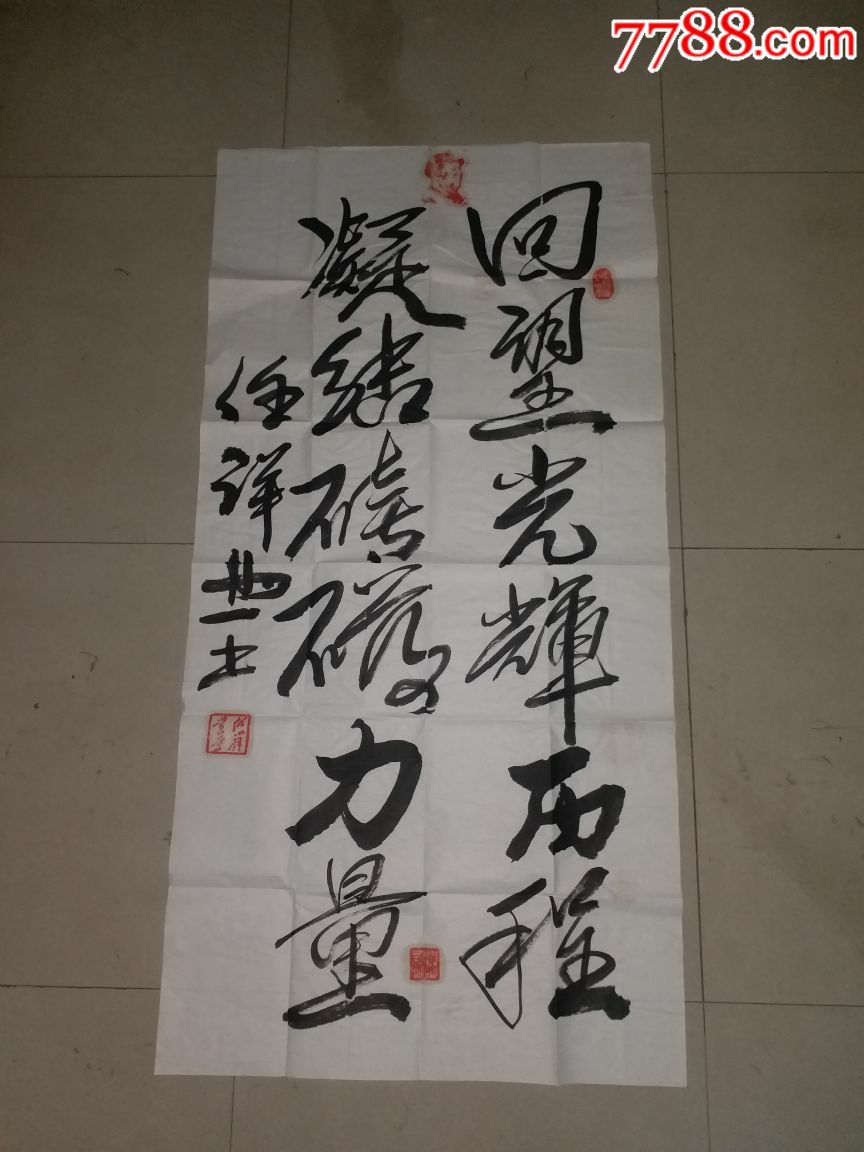 7788.com
回望光輝历程
凝结磅礴力量
任詳